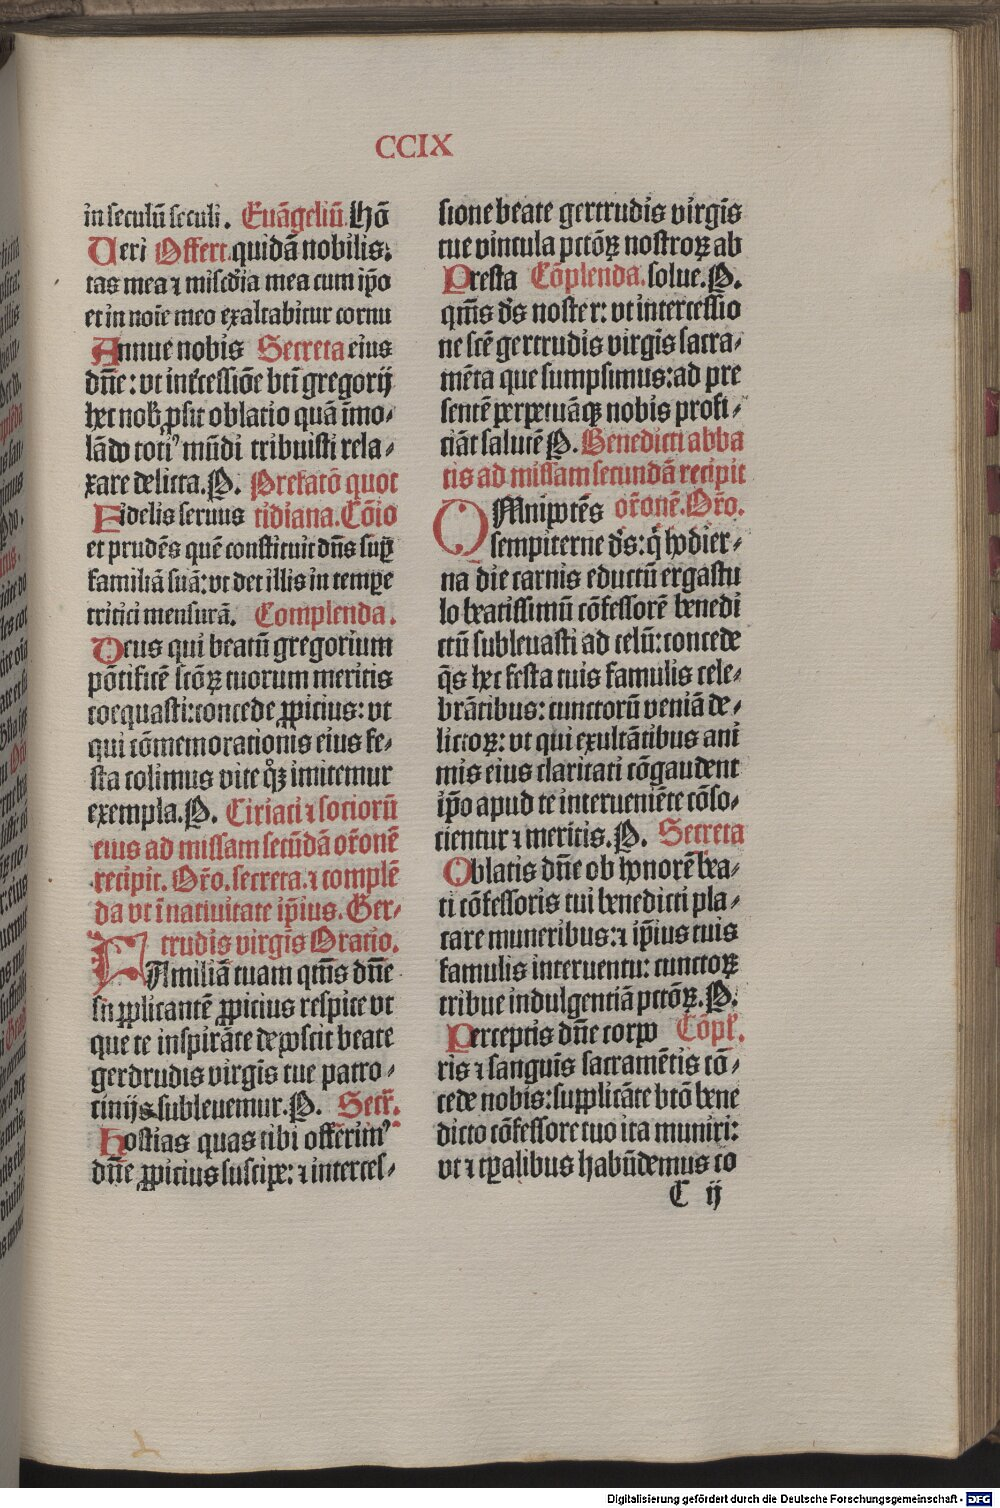 CCIX
in seculū seculi. Euāgeliū. Hō
Ueri Offert. quidā nobilis.
tas mea ⁊ misc̄dia mea cum ip̄o
et in noīe meo exaltabitur cornu
Annue nobis Secreta eius
dn̄e: vt int̄cessiōe bt̄i gregorij
hec nob̄ ꝓsit oblatio quā īmo⸗
lādo totiꝰ mūdi tribuisti rela⸗
xare delicta. P. Prefatō quot
Fidelis seruus tidiana. Cōio
et prudēs quē constituit dn̄s suꝑ
familiā suā: vt det illis in tempe
tritici mensurā. Complenda.
Deus qui beatū gregorium
pōtificē scōꝝ tuorum meritis
coequasti: concede ꝓpicius: vt
qui cōmemorationis eius fe⸗
sta colimus vite qͦꝫ imitemur
exempla. P. Ciriaci ⁊ sociorū
eius ad missam secūdā or̄onē
recipit. Or̄o. secreta. ⁊ complē
da vt ī natiuitate ip̄ius. Ger⸗
trudis virgīs Oratio.
FAmiliā tuam qm̄s dn̄e
su ꝓplicantē ꝓpicius respice vt
que te inspirāte deposcit beate
gerdrudis virgīs tue patro⸗
cinijs subleuemur. P. Secr̄.
Hostias quas tibi offerimꝰ
dn̄e ꝓpicius suscipe: ⁊ interces⸗
sione beate gertrudis virgīs
tue vincula pctōꝝ nostroꝝ ab
Presta Cōplenda. solue. P.
qm̄s ds̄ noster: vt intercessio
ne scē gertrudis virgīs sacra⸗
mēta que sumpsimus: ad pre
sentē perpetuāqꝫ nobis profi⸗
ciāt salutē P. Benedicti abba
tis ad missam secundā recipit
OMnipotēs or̄onē. Or̄o.
sempiterne ds̄: q̄ hodier⸗
na die carnis eductū ergastu
lo beatissimū cōfessorē benedi
ctū subleuasti ad celū: concede
q̄s hec festa tuis famulis cele⸗
brātibus: cunctorū veniā de⸗
lictoꝝ: vt qui exultātibus ani
mis eius claritati cōgaudent
ip̄o apud te interueniēte cōso⸗
cientur ⁊ meritis. P. Secreta
Oblatis dn̄e ob honorē bea⸗
ti cōfessoris tui benedicti pla⸗
care muneribus: ⁊ ip̄ius tuis
famulis interuentu: cunctoꝝ
tribue indulgentiā pctōꝝ. P.
Perceptis dn̄e corpo Cōpl̄.
ris ⁊ sanguīs sacramētis cō⸗
cede nobis: supplicāte btō bene
dicto cōfessore tuo ita muniri:
vt ⁊ tꝑalibus habūdemus ⁊o
C ij
Digitalisierung gefördert durch die Deutsche Forschungsgemeinschaft - DFG